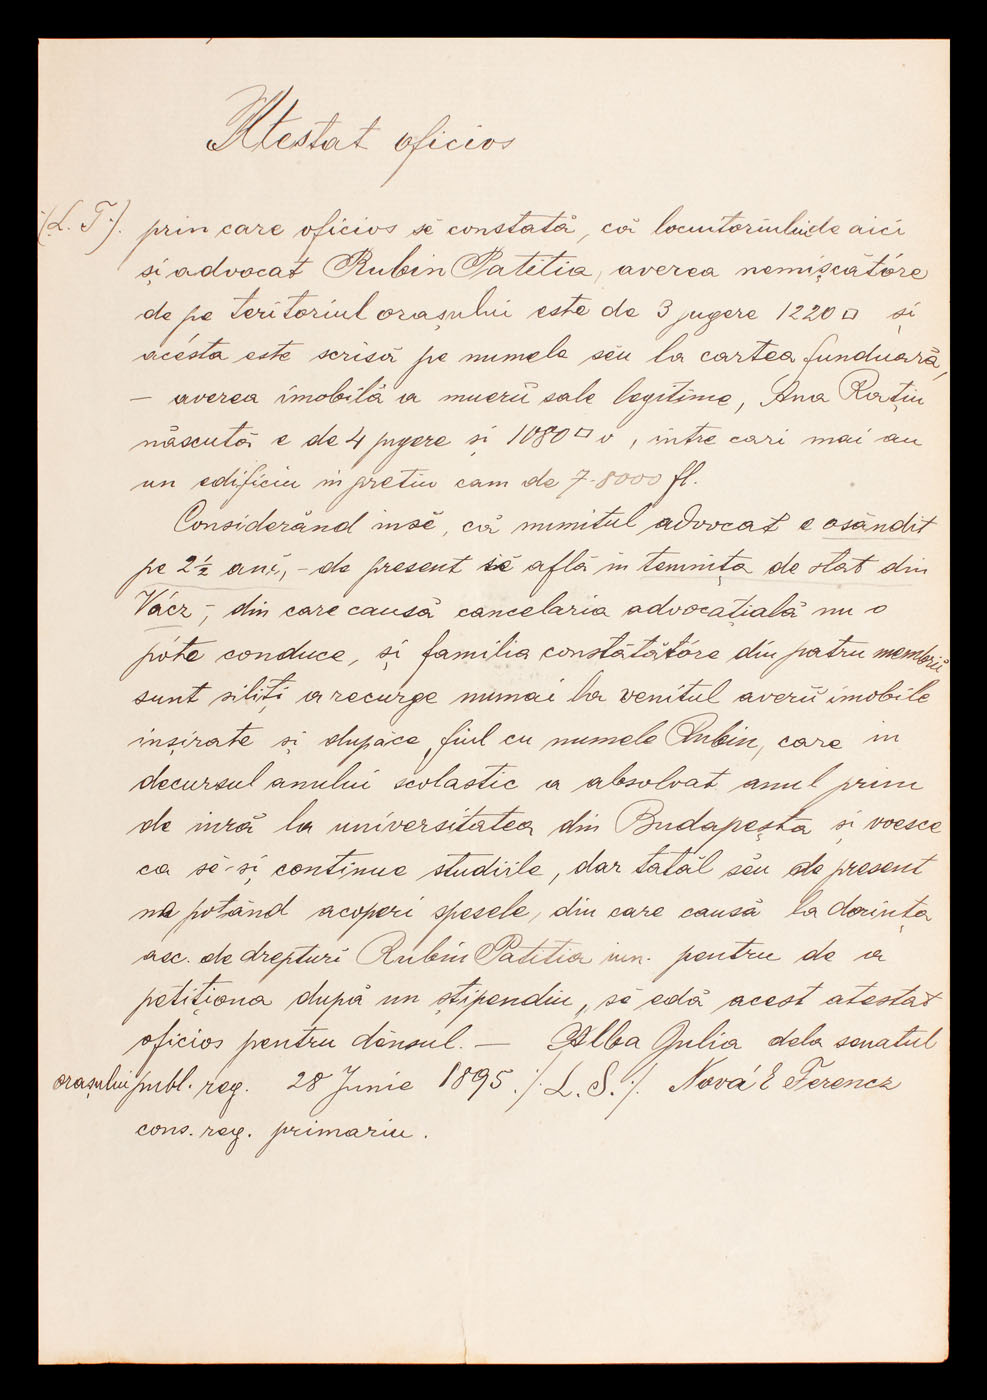 Atestat oficios
(L. T.). prin care oficios sĕ constată, că locuitoriului de aici
și advocat Rubin Patitia, averea nemișcatóre
de pe teritoriul orașului este de 3 jugere 1220□ și
acésta este scrisă pe numele sĕu la cartea funduară,
– averea imobilă a muerii sale legitime, Ana Rațiu
născută e de 4 jugere și 1080□ v, intre cari mai au
un edificiu in pretiu cam de 7-8000 fl.
Considerând insĕ, că numitul advocat e osândit
pe 2½ ani, – de present sĕ află in temnița de stat din
Vácz, – din care causă cancelaria advocațială nu o
póte conduce, și familia constătătóre din patru membrii
sunt siliți a recurge numai la venitul averii imobile
inșirate și dupăce fiul cu numele Rubin, care in
decursul anului scolastic a absolvat anul prim
de inră la universitatea din Budapeșta și voesce
ca sĕ-și continue studiile, dar tatăl sĕu de present
ne potând acoperi spesele, din care causă la dorința
asc. de drepturi Rubin Patitia iun. pentru de a
petiționa după un știpendiu, sĕ edă acest atestat
oficios pentru dênsul. — Alba Julia dela senatul
orașului publ. reg. 28 Junie 1895 ./. L. S. /. Novák Ferencz
cons. reg. primariu.